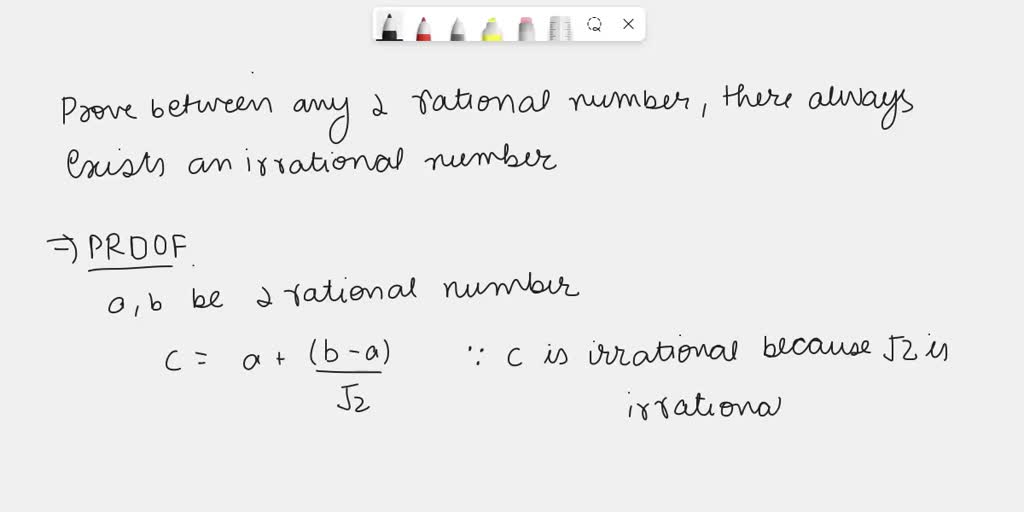 Prove between any 2 rational number, there always
exists an irrational number
⇒) PROOF
a, b be 2 rational number
c = a + (b-a)/√2 ∵ c is irrational because √2 is
irrationa